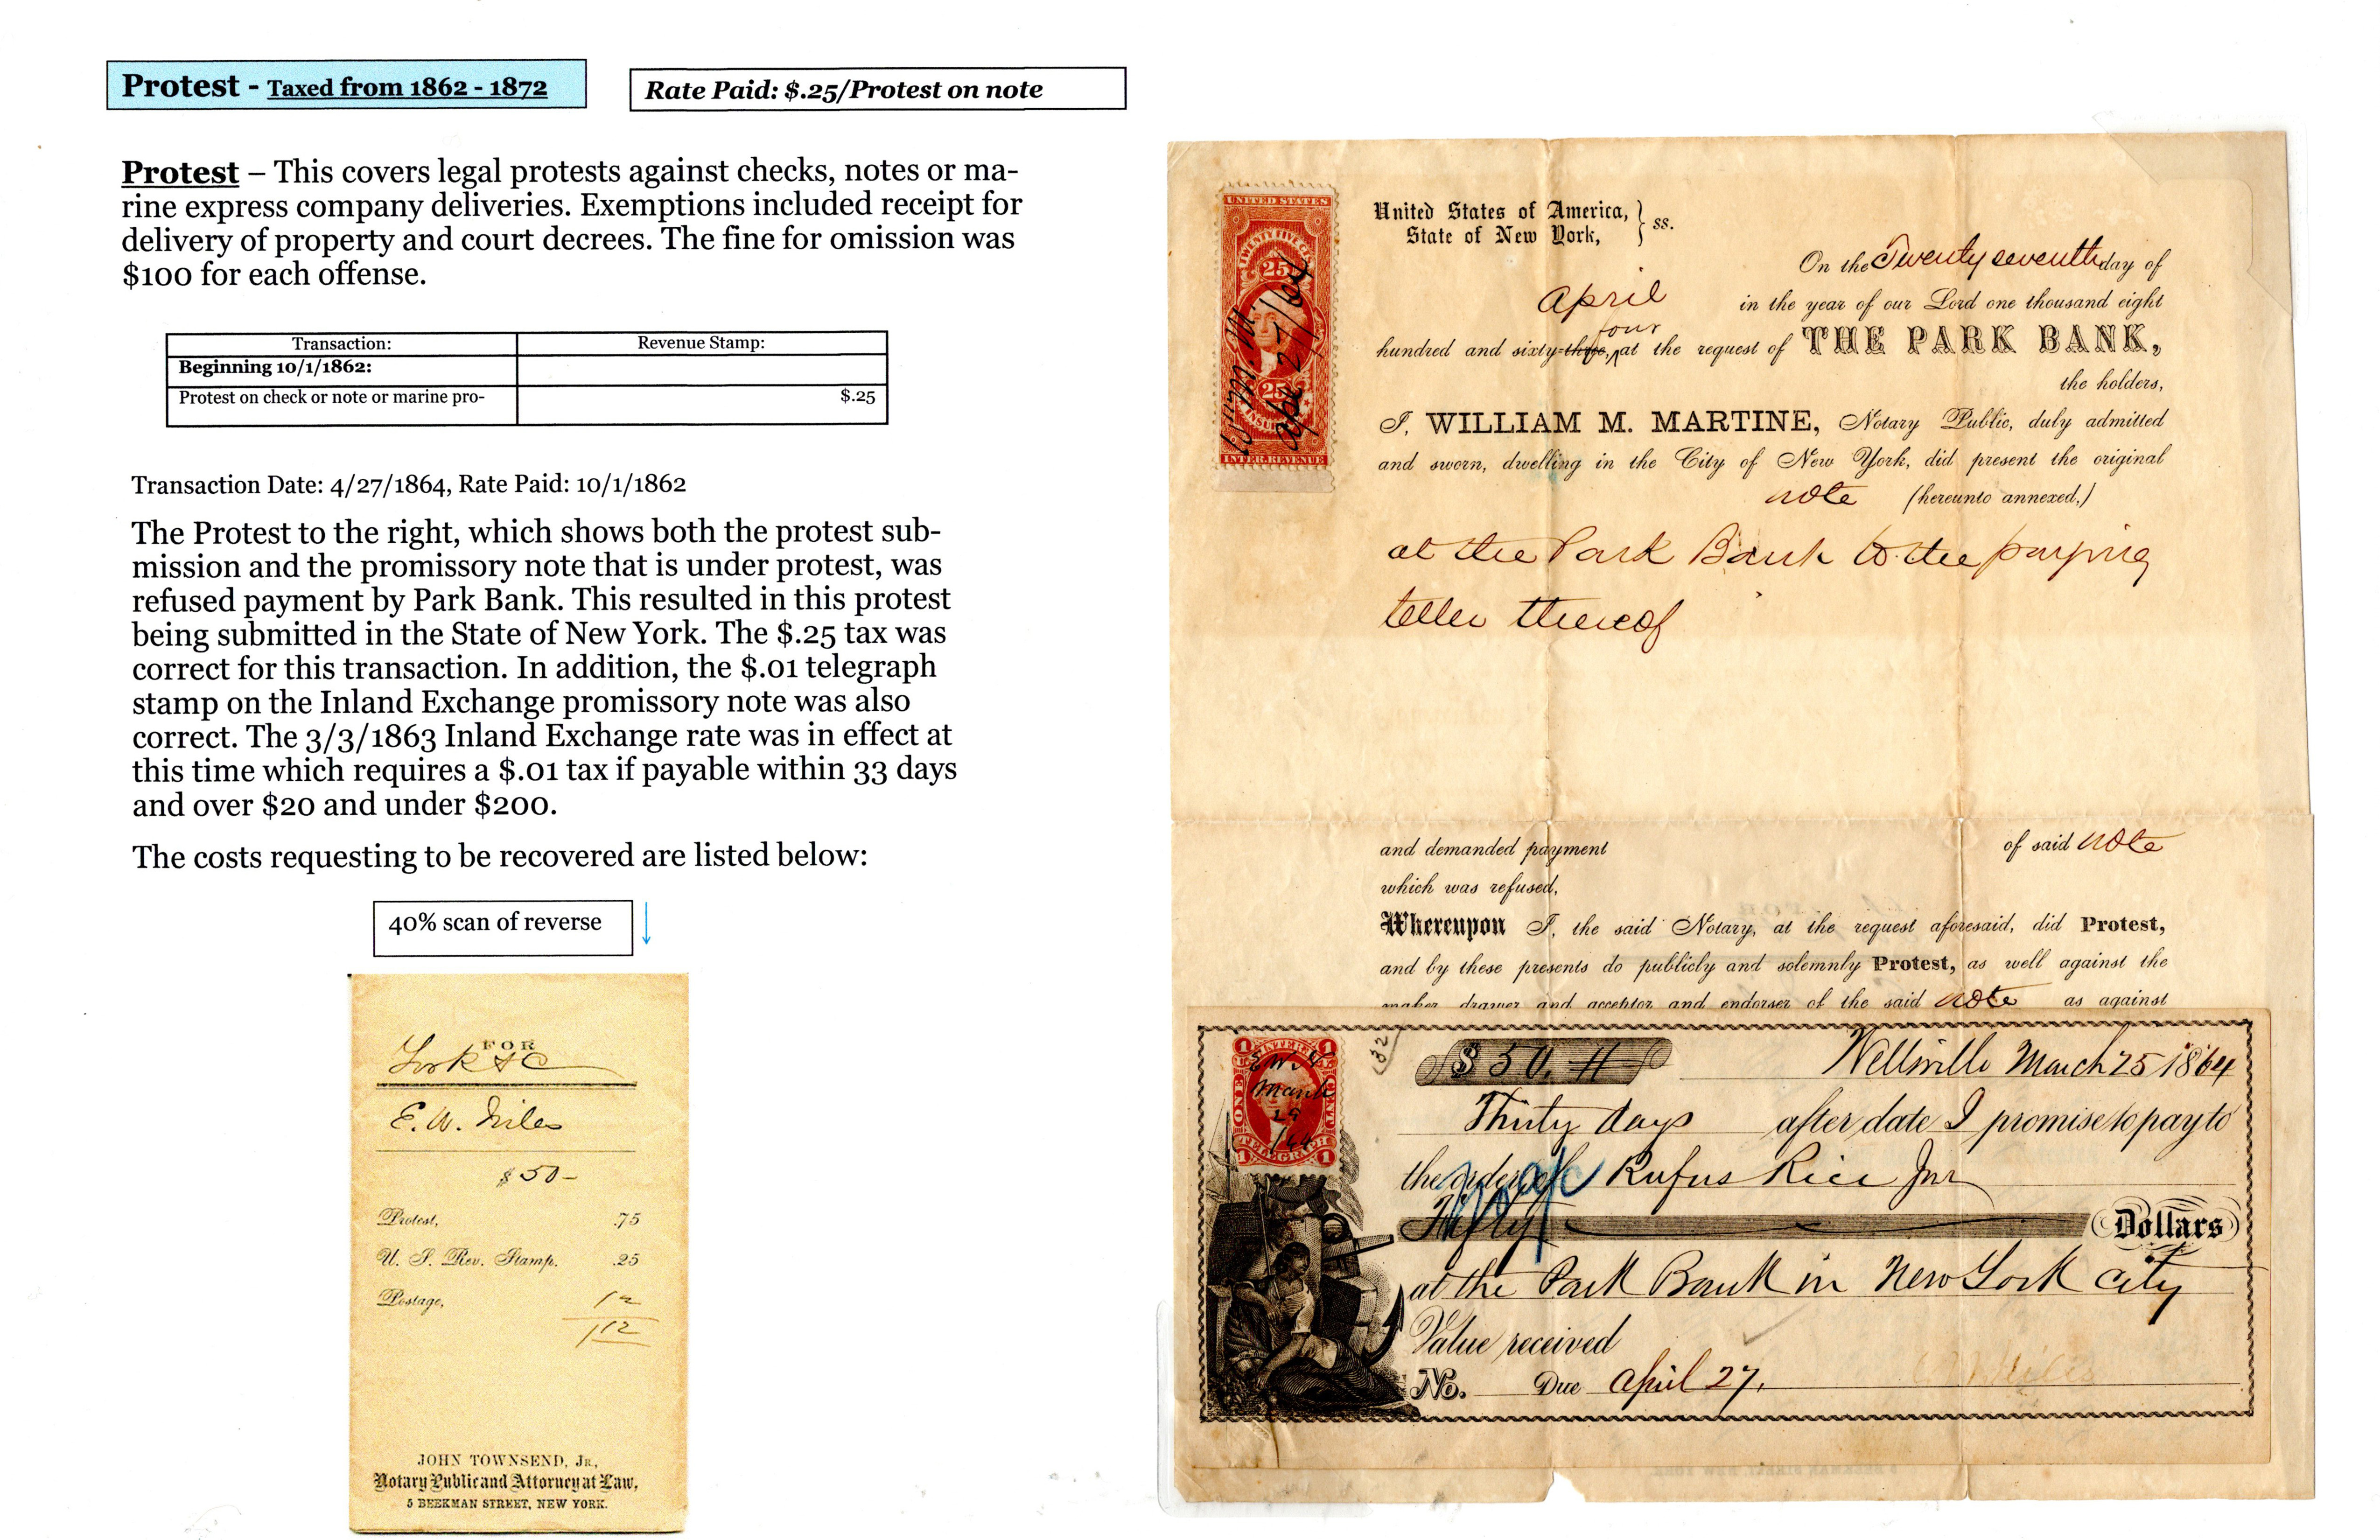 Protest - Taxed from 1862 - 1872
Rate Paid: $.25/Protest on note
Protest – This covers legal protests against checks, notes or ma-
rine express company deliveries. Exemptions included receipt for
delivery of property and court decrees. The fine for omission was
$100 for each offense.
Transaction: Revenue Stamp:
Beginning 10/1/1862:
Protest on check or note or marine pro- $.25
Transaction Date: 4/27/1864, Rate Paid: 10/1/1862
The Protest to the right, which shows both the protest sub-
mission and the promissory note that is under protest, was
refused payment by Park Bank. This resulted in this protest
being submitted in the State of New York. The $.25 tax was
correct for this transaction. In addition, the $.01 telegraph
stamp on the Inland Exchange promissory note was also
correct. The 3/3/1863 Inland Exchange rate was in effect at
this time which requires a $.01 tax if payable within 33 days
and over $20 and under $200.
The costs requesting to be recovered are listed below:
40% scan of reverse
FOR
E. W. Niles
$50-
Protest, .75
U. S. Rev. Stamp. .25
Postage, 12
112
JOHN TOWNSEND, JR.,
Notary Public and Attorney at Law,
5 BEEKMAN STREET, NEW YORK.
UNITED STATES
TWENTY FIVE
25
25
INTER. REVENUE
Apl 27/64
United States of America,
State of New York, } ss.
On the Twenty seventh day of
April in the year of our Lord one thousand eight
four
hundred and sixty-three, at the request of THE PARK BANK,
the holders,
I, WILLIAM M. MARTINE, Notary Public, duly admitted
and sworn, dwelling in the City of New York, did present the original
note (hereunto annexed,)
at the Park Bank to the paying
teller thereof
and demanded payment of said note
which was refused,
Whereupon I, the said Notary, at the request aforesaid, did Protest,
and by these presents do publicly and solemnly Protest, as well against the
maker drawer and acceptor and endorser of the said note as against
1 1
ONE CENT
E W N
March
29
/64
TELEGRAPH
1 1
$50. Wellsville March 25 1864
Thirty days after date I promise to pay to
the order of Rufus Rice Jnr
Fifty Dollars
at the Park Bank in New York City
Value received
No. Due April 27, Niles